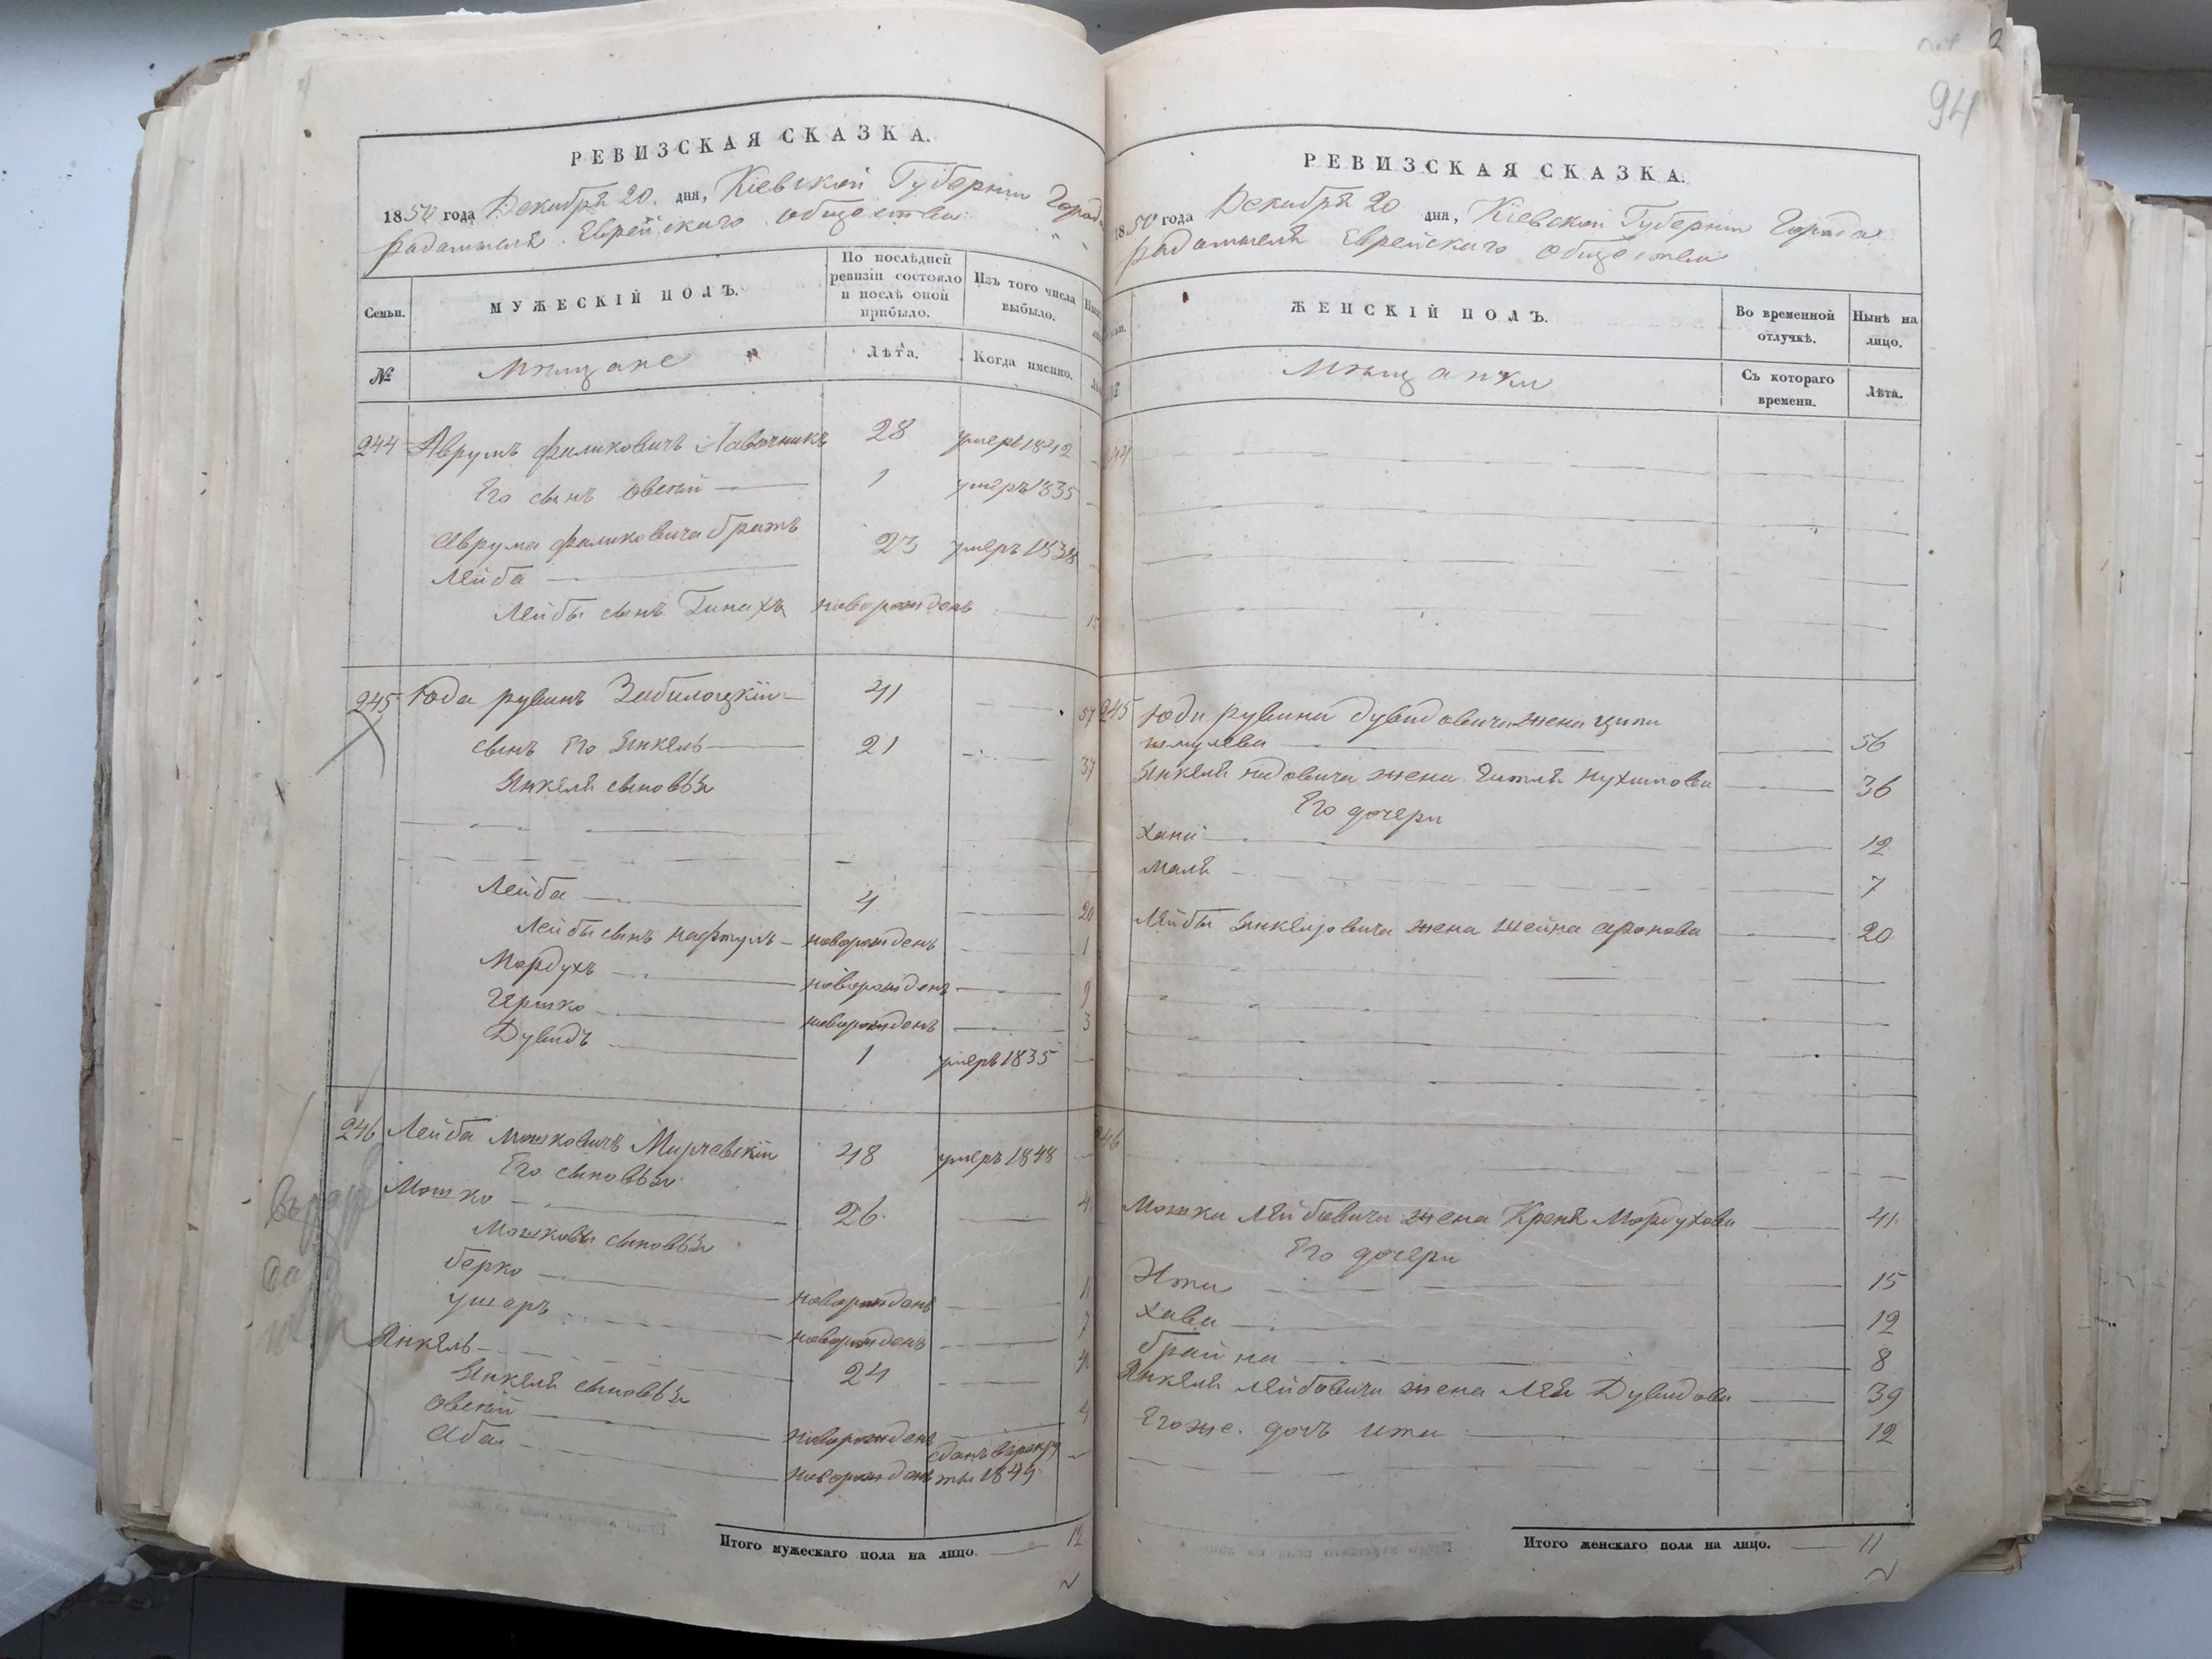 94
РЕВИЗСКАЯ СКАЗКА.
1850 года Декабря 20. дня, Кіевской Губерніи Город
Радомысля Еврейскаго общества
Семьи.
МУЖЕСКІЙ ПОЛЪ.
По послѣдней ревизіи состояло и послѣ оной прибыло.
Изъ того числа выбыло.
№
Мѣщане
Лѣта.
Когда именно.
244 Аврумъ Фаликовичъ Лавочникъ 28 умеръ 1842
Его сынъ Овсей 1 умеръ 1835
Аврума Фаликовича братъ
Лейба 23 умеръ 1838
Лейбы сынъ Гинахъ новорожденъ 15
245 Юда Рувинъ Забилоцкій 41 57
сынъ Его Янкель 21 37
Янкеля сыновья
Лейба 4 20
Лейбы сынъ Нафтулъ новорожденъ 1
Мордухъ новорожденъ 9
Гершко новорожденъ 3
Дувидъ 1 умеръ 1835
246 Лейба Мошковичъ Мирчевскій 48 умеръ 1848
Его сыновья
Мошко 26
Мошковы сыновья
Берко новорожденъ 11
Ушеръ новорожденъ 7
Янкель 24
Янкеля сыновья
Овсей новорожденъ 4
Аба новорожденъ сданъ в рекруты 1849
Итого мужескаго пола на лицо. 12
РЕВИЗСКАЯ СКАЗКА.
1850 года Декабря 20 дня, Кіевской Губерніи Города
Радомысля Еврейскаго общества
ЖЕНСКІЙ ПОЛЪ.
Во временной отлучкѣ.
Нынѣ на лицо.
Мѣщанки
Съ котораго времени.
Лѣта.
245 Юды Рувина Дувидовича жена Ципа
Шмулева 56
Янкеля Юдовича жена Гитля Нухимова 36
Его дочери
Хана 12
Маля 7
Лейбы Янкелевича жена Шейна Аронова 20
246
Мошка Лейбовича жена Креня Мордухова 41
Его дочери
Ита 15
Хава 12
Брайна 8
Янкеля Лейбовича жена Лея Дувидова 39
Его же дочь Ита 12
Итого женскаго пола на лицо. 11